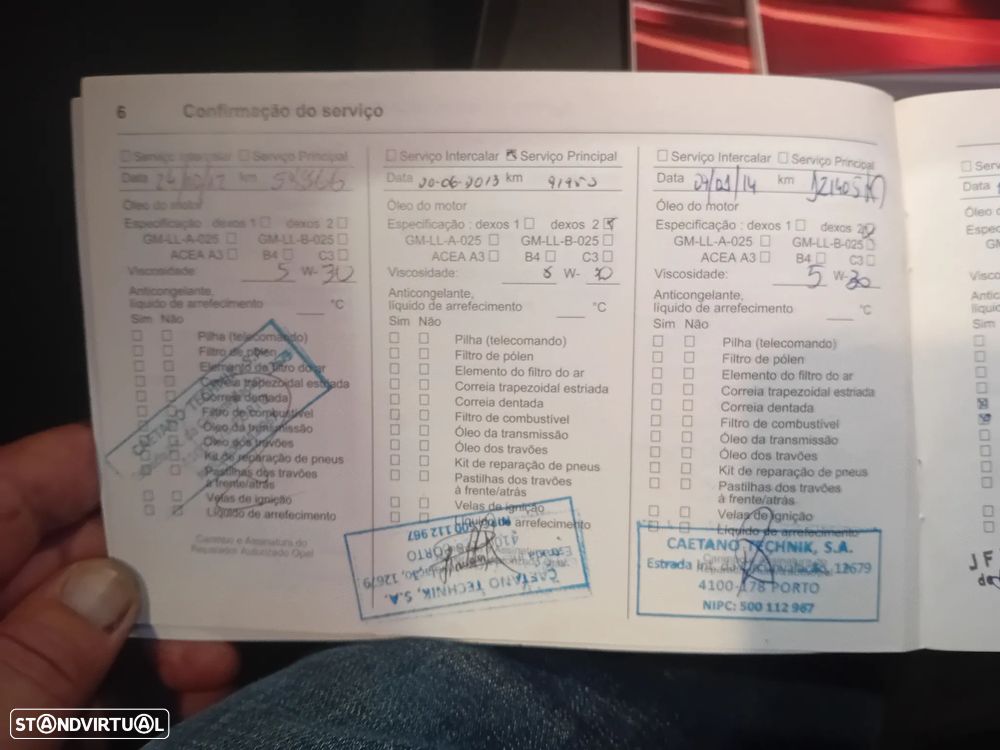 6 Confirmação do serviço
Serviço Intercalar Serviço Principal
Data km
Óleo do motor
Especificação: dexos 1 dexos 2
GM-LL-A-025 GM-LL-B-025
ACEA A3 B4 C3
Viscosidade: 5 W-30
Anticongelante,
líquido de arrefecimento °C
Sim Não
Pilha (telecomando)
Filtro de pólen
Elemento do filtro do ar
Correia trapezoidal estriada
Correia dentada
Filtro de combustível
Óleo da transmissão
Óleo dos travões
Kit de reparação de pneus
Pastilhas dos travões
à frente/atrás
Velas de ignição
Líquido de arrefecimento
Carimbo e Assinatura do
Reparador Autorizado Opel
CAETANO TECHNIK
Serviço Intercalar Serviço Principal
Data 20-06-2013 km 91953
Óleo do motor
Especificação : dexos 1 dexos 2
GM-LL-A-025 GM-LL-B-025
ACEA A3 B4 C3
Viscosidade: W- 30
Anticongelante,
líquido de arrefecimento °C
Sim Não
Pilha (telecomando)
Filtro de pólen
Elemento do filtro do ar
Correia trapezoidal estriada
Correia dentada
Filtro de combustível
Óleo da transmissão
Óleo dos travões
Kit de reparação de pneus
Pastilhas dos travões
à frente/atrás
Velas de ignição
Líquido de arrefecimento
CAETANO TECHNIK, S.A.
Estrada 12679
PORTO
500 112 967
Serviço Intercalar Serviço Principal
Data /14 km
Óleo do motor
Especificação : dexos 1 dexos 2
GM-LL-A-025 GM-LL-B-025
ACEA A3 B4 C3
Viscosidade: 5 W-30
Anticongelante,
líquido de arrefecimento °C
Sim Não
Pilha (telecomando)
Filtro de pólen
Elemento do filtro do ar
Correia trapezoidal estriada
Correia dentada
Filtro de combustível
Óleo da transmissão
Óleo dos travões
Kit de reparação de pneus
Pastilhas dos travões
à frente/atrás
Velas de ignição
Líquido de arrefecimento
CAETANO TECHNIK, S.A.
Estrada Int. da Circunvalação, 12679
4100-178 PORTO
NIPC: 500 112 967
STANDVIRTUAL